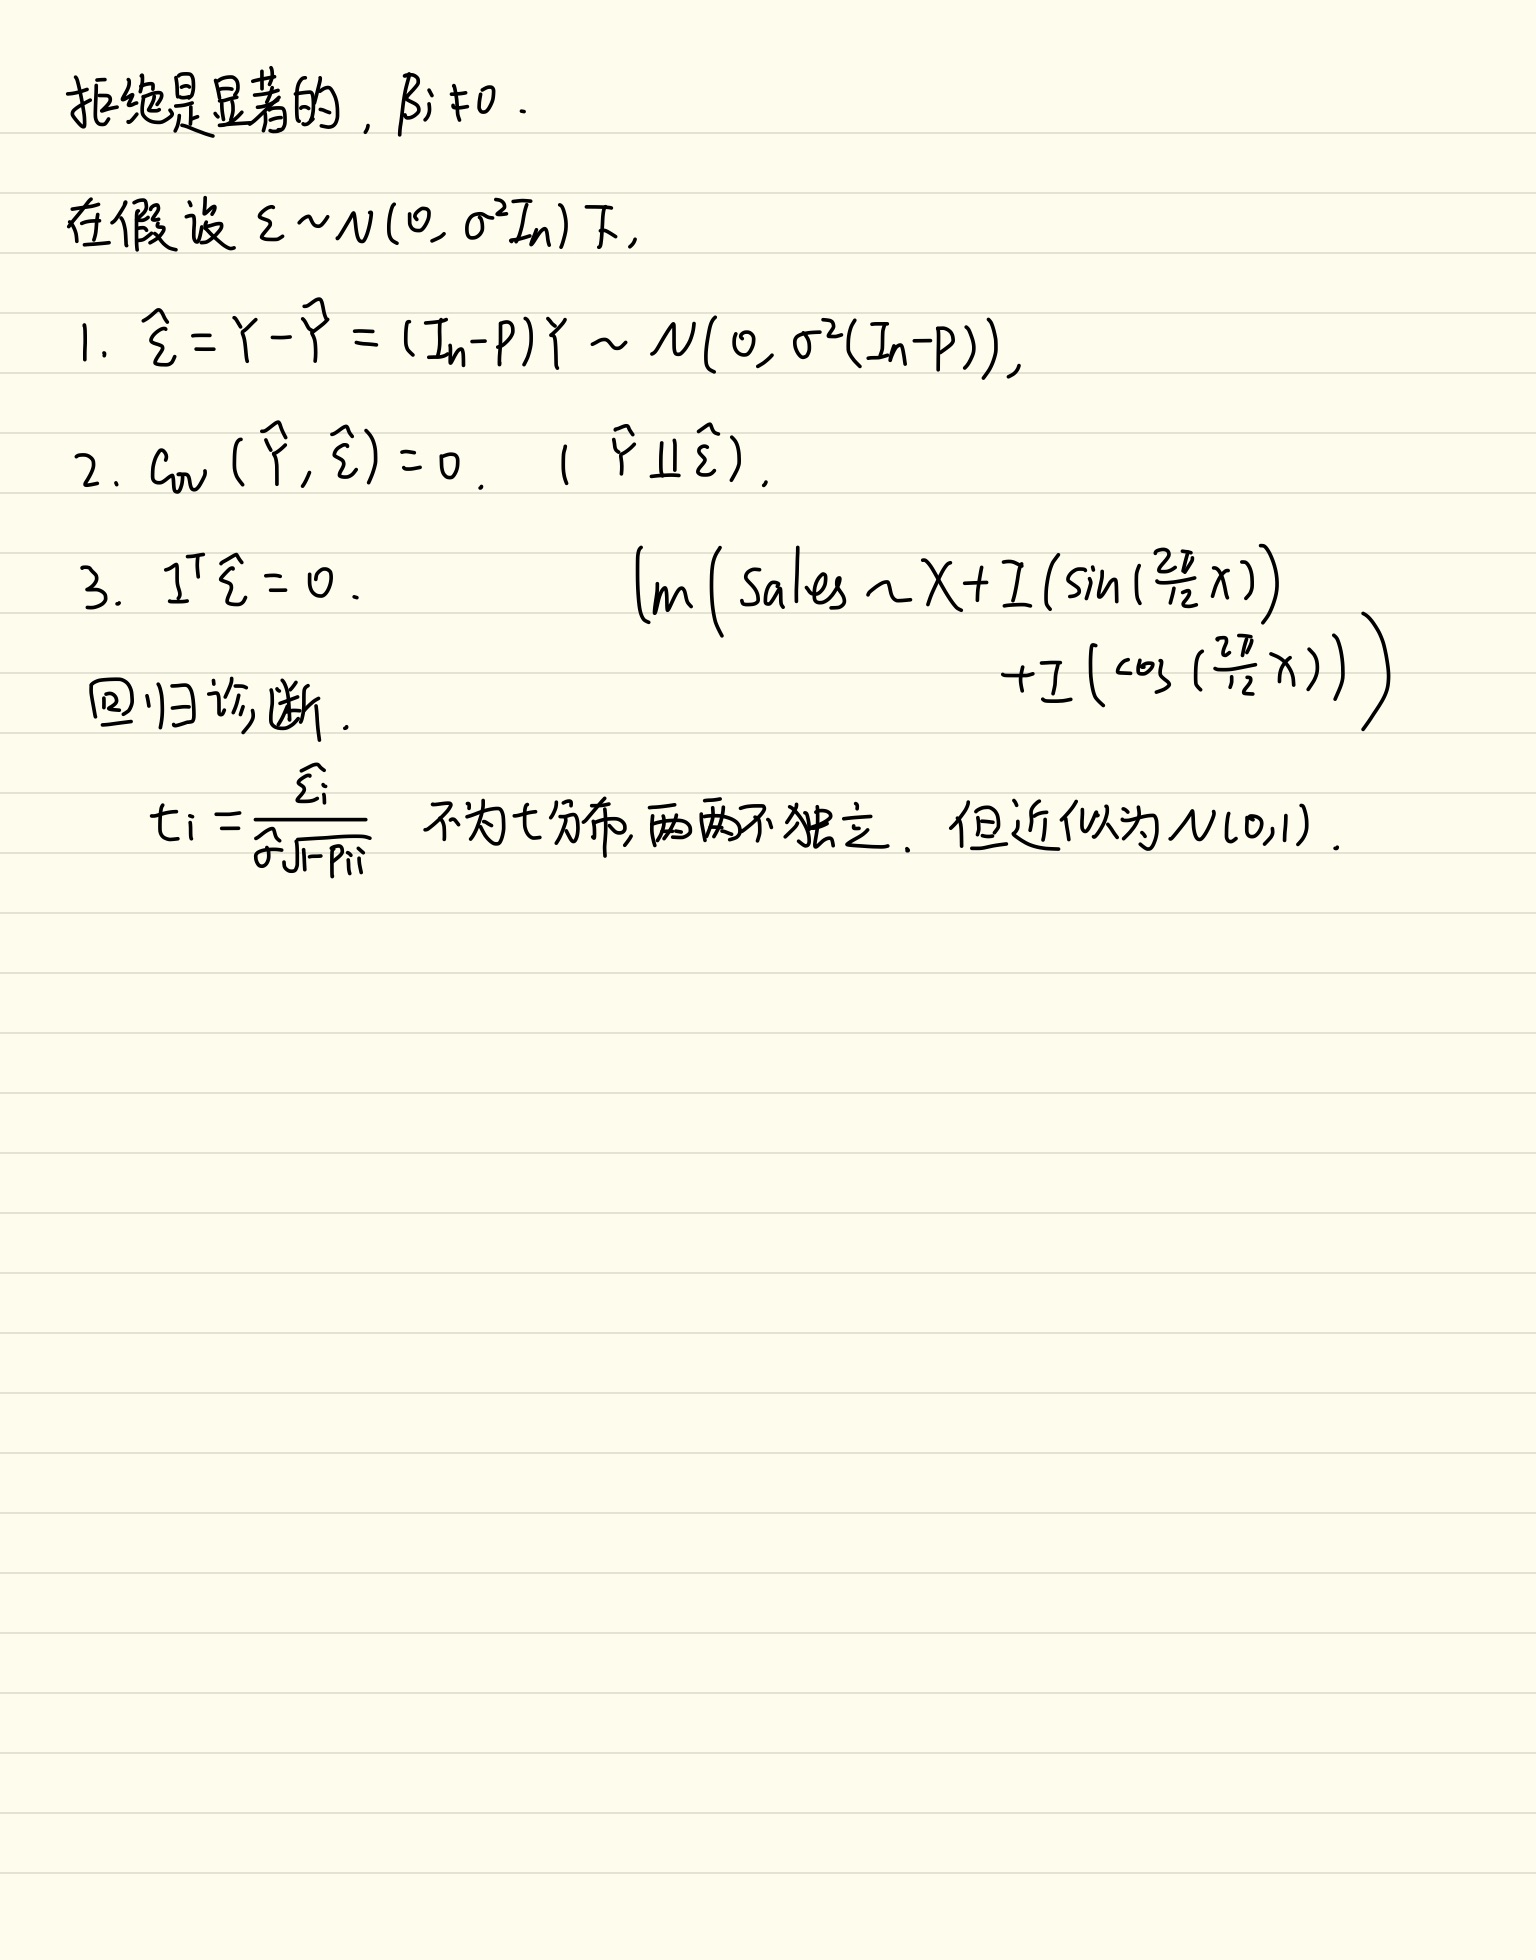 拒绝是显著的, βi≠0.
在假设 ε~N(0, σ²In)下,
1. ε̂ = Y-Ŷ = (In-P)Y ~ N(0, σ²(In-P)),
2. Cov(Ŷ, ε̂)=0. (Ŷ⫫ε̂).
3. 1ᵀε̂=0.
lm(Sales~X+I(sin(2π/12 x))
+I(cos(2π/12 x)))
回归诊断.
ti = ε̂i/(σ̂√(1-Pii)) 不为t分布,两两不独立. 但近似为N(0,1).